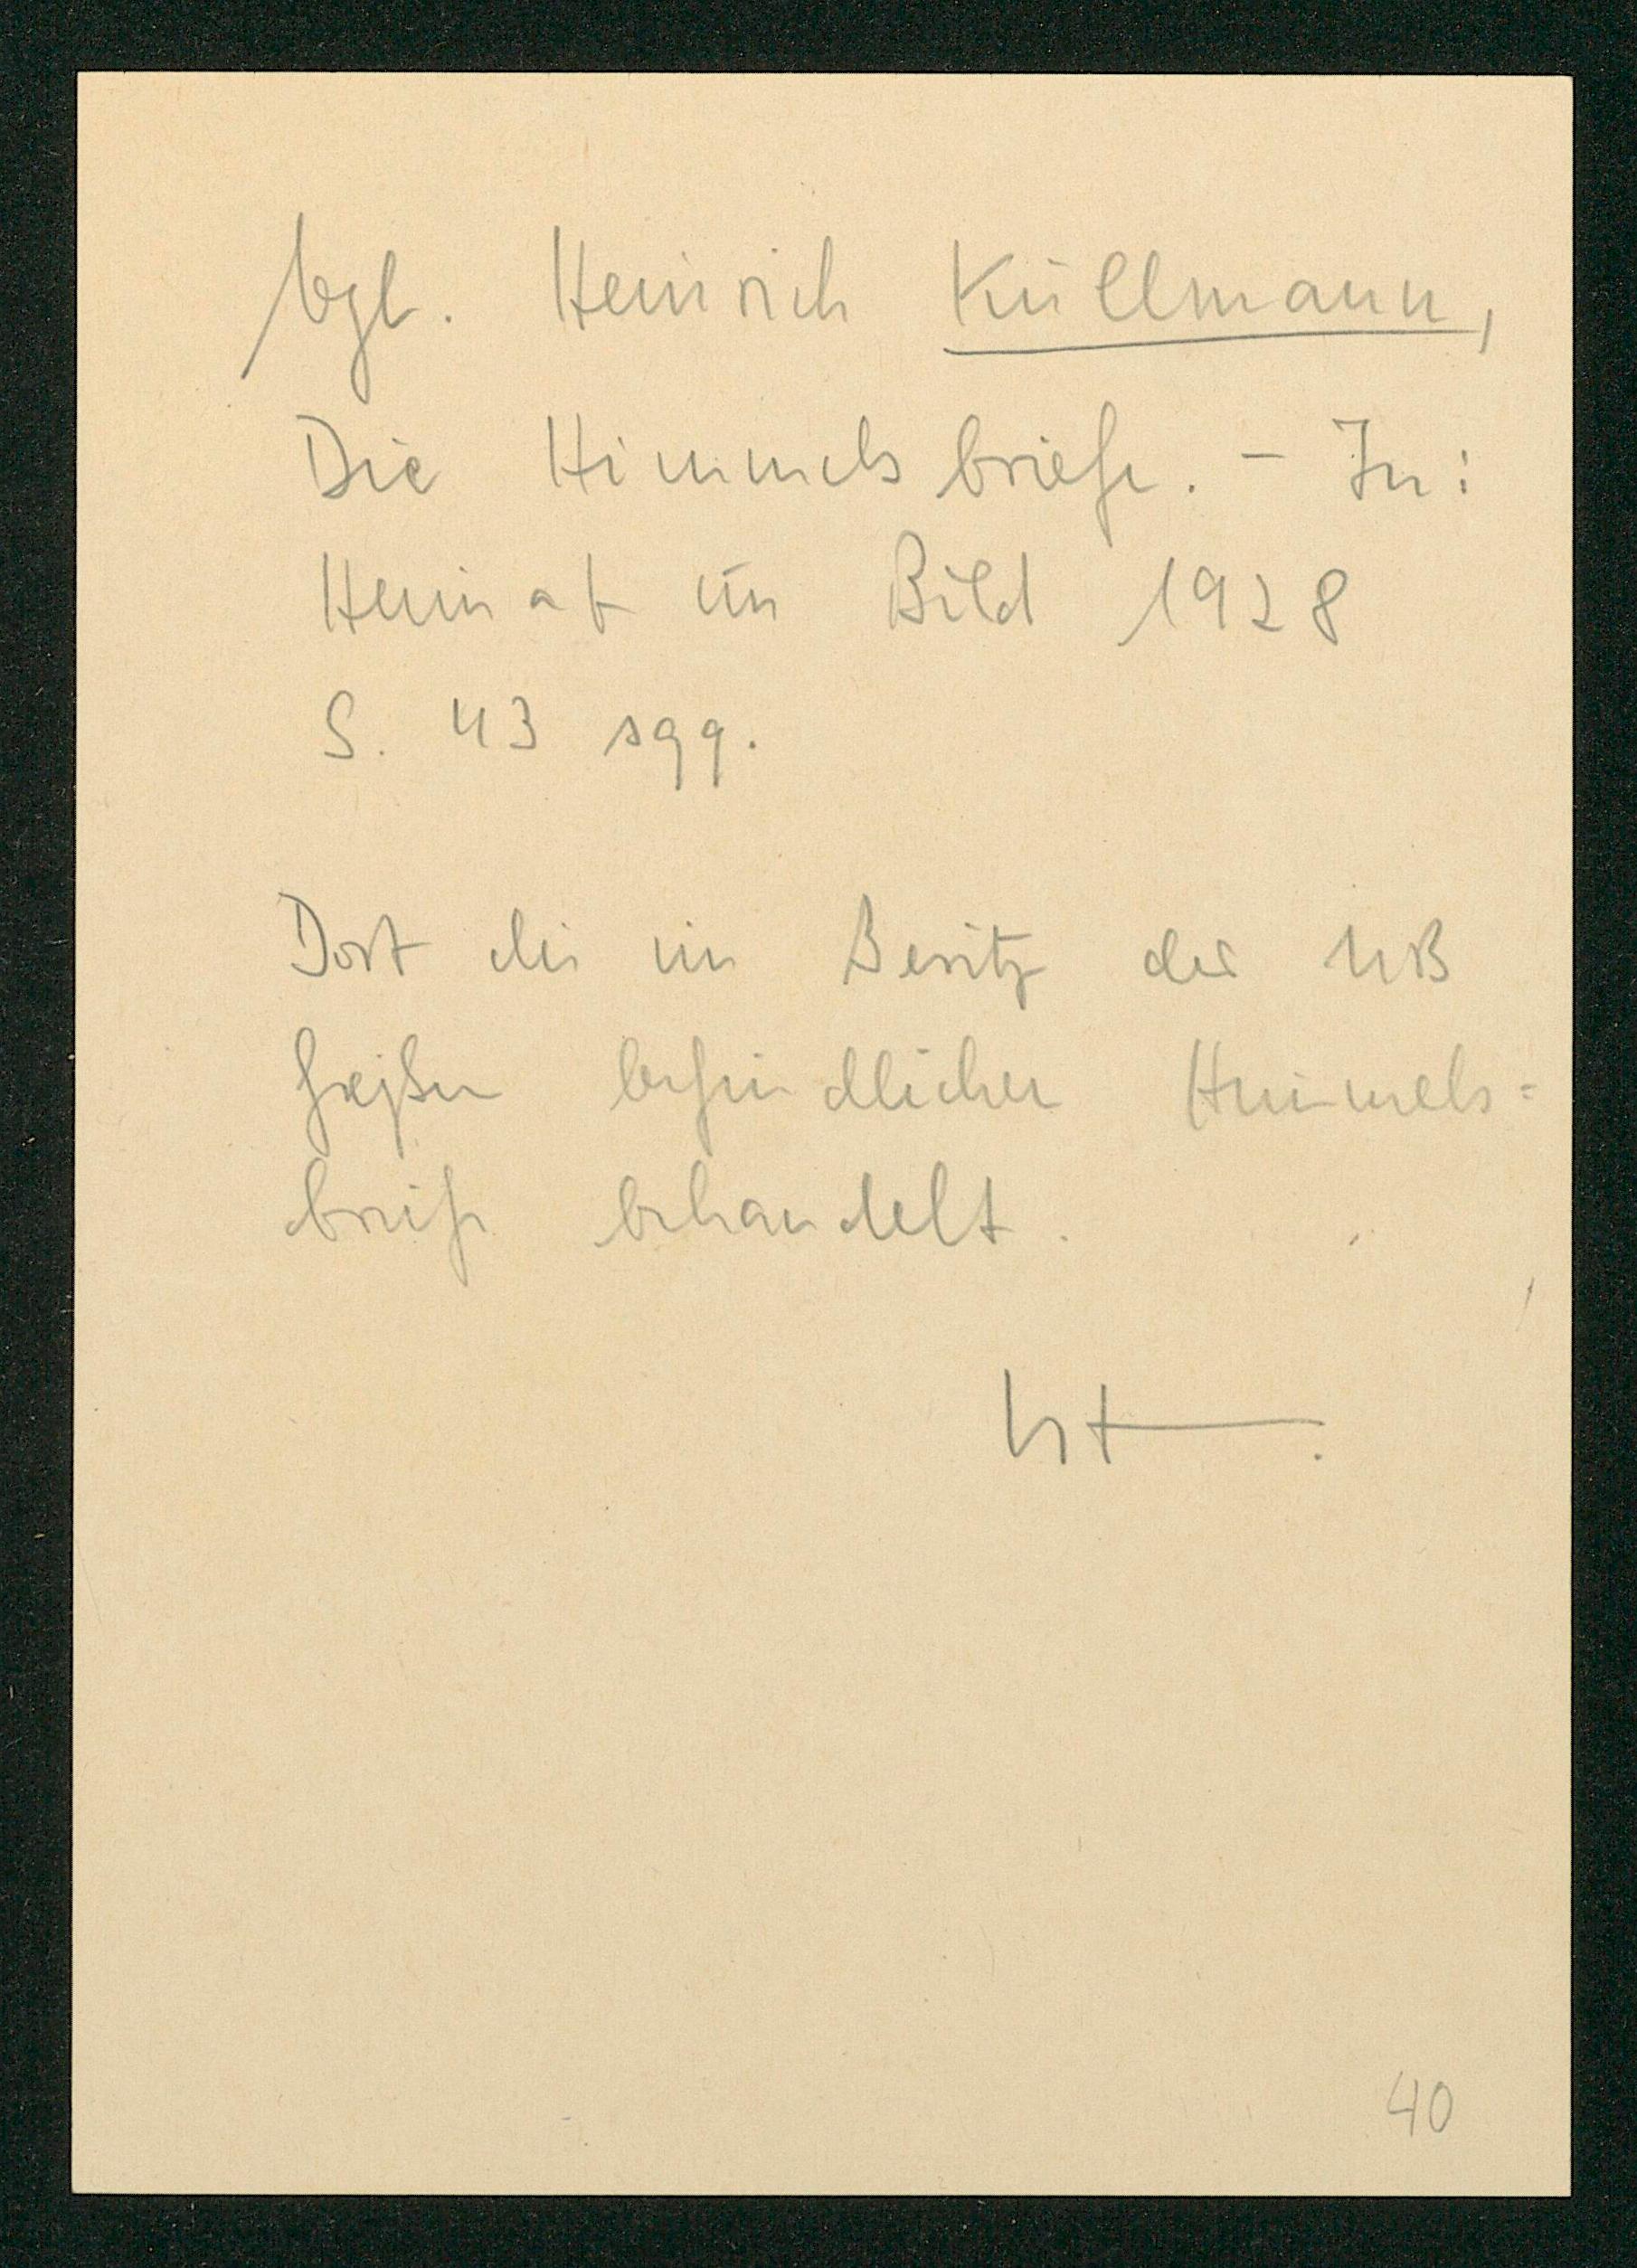 Vgl. Heinrich Küllmann,
Die Himmelsbriefe. - In:
Heimat im Bild 1928
S. 43 sqq.
Dort die im Besitz der UB
Gießen befindlichen Himmels=
briefe behandelt.
40